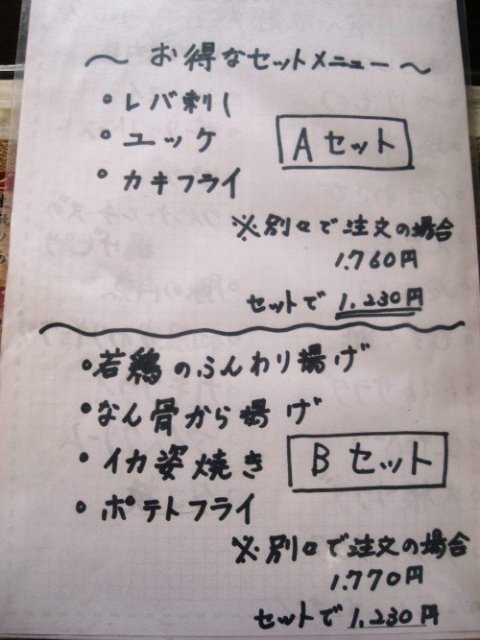 〜 お得なセットメニュー 〜
・レバ刺し
・ユッケ
・カキフライ
Aセット
※別々で注文の場合
1.760円
セットで 1.230円
・若鶏のふんわり揚げ
・なん骨から揚げ
・イカ姿焼き
・ポテトフライ
Bセット
※別々で注文の場合
1.770円
セットで 1.230円